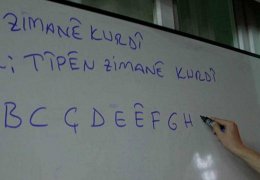 ZIMANÊ KURDÎ
: TÎPÊN ZIMANÊ KURDÎ
B C Ç D E Ê F G H